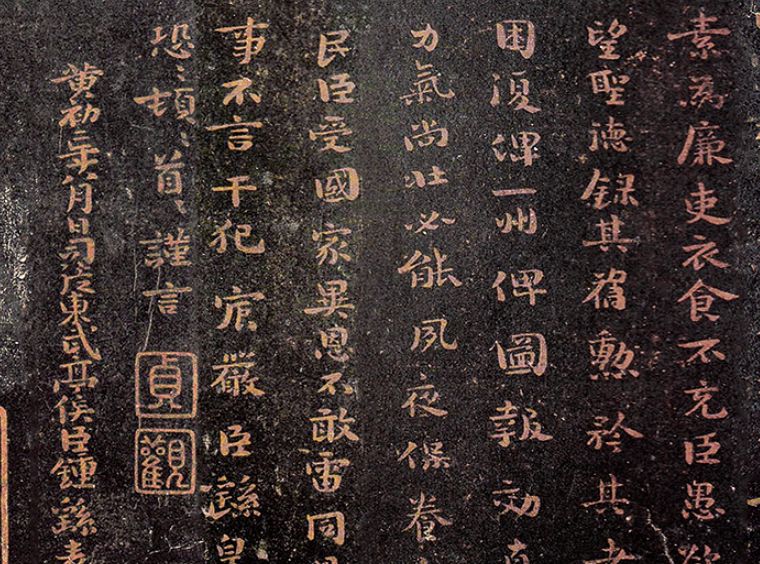 素為廉吏衣食不充臣愚欲
望聖德錄其舊勳矜其老
困復俾一州俾圖報効直
力氣尚壯必能夙夜保養
民臣受國家異恩不敢雷同見
事不言干犯宸嚴臣繇皇
恐〻頓〻首〻謹言
黃初二年八月日司徒東武亭侯臣鍾繇表
貞
觀